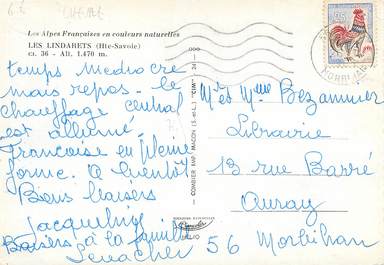 Les Alpes Françaises en couleurs naturelles
LES LINDARETS (Hte-Savoie)
ca. 36 - Alt. 1.470 m.
temps médiocre
mais repos - le
chauffage central
est allumé
Françoise en pleine
forme. A bientôt
Bons baisers
Jacqueline
Baisers à la famille
COMBIER IMP. MACON (S.-et-L.) "CIM"
Mr et Mme Bezannier
Librairie
13 rue Barré
Auray
56 Morbihan
MORBIHAN